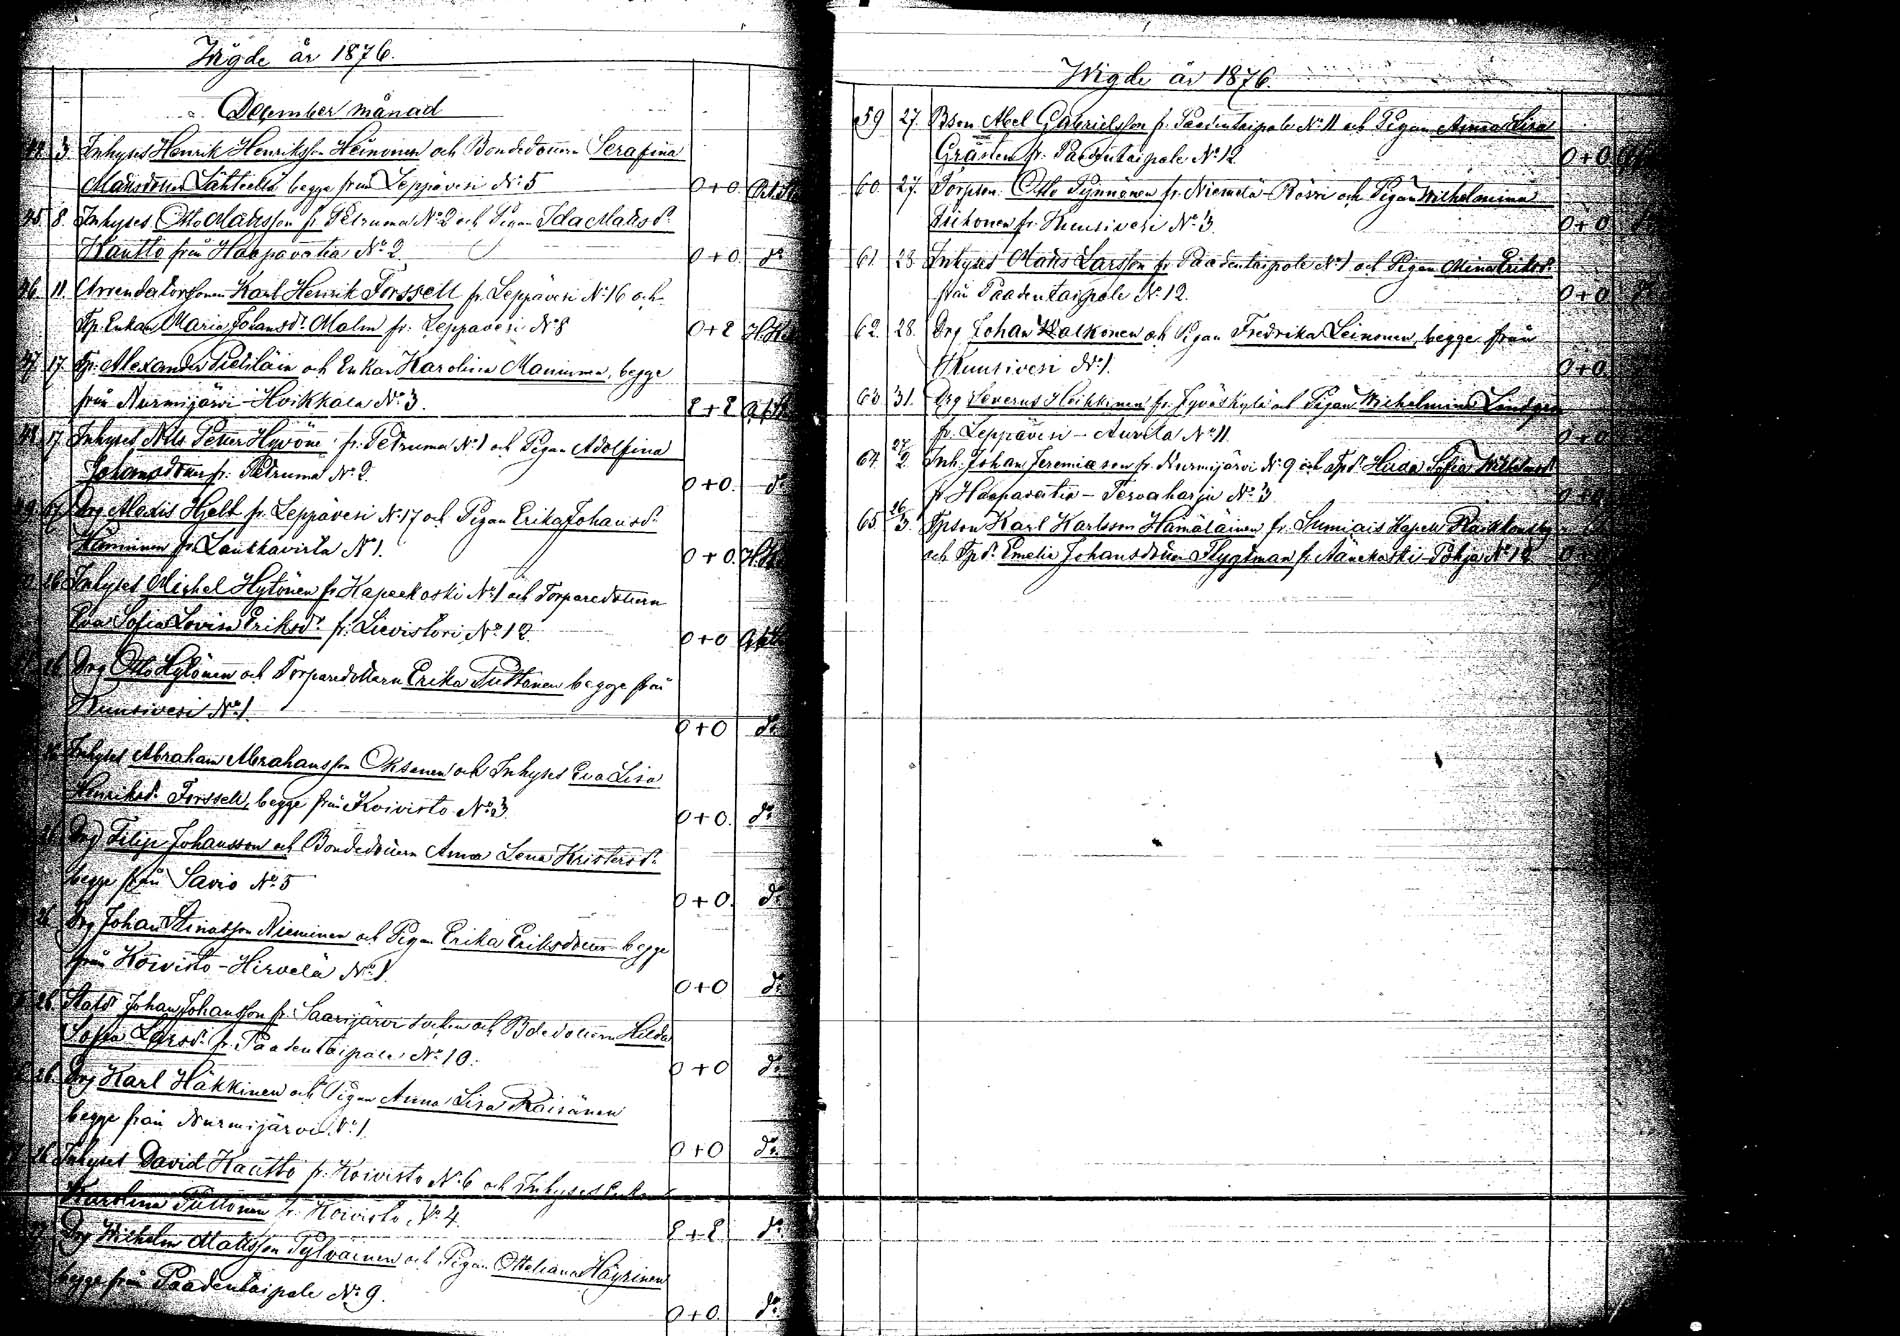 Wigde år 1876.
December månad
44. 3 Inhyses Henrik Henriksson Heinonen och Bondedottern Serafina
Matsdotter Lahtiela begge från Leppävesi No 5 0+0
45 8. Inhyses Otto Matsson fr Petruma No 2 och Pigan Ida Matsdr
Kautto från Haapavatia No 2 0+0. do
46. 11. Arrendatorsonen Karl Henrik Forssell fr. Leppävesi No 16 och
Tp. Enkan Maria Johansdr Malm fr. Leppävesi No 8 0+E
47 17. Tp. Alexander Pieiläin och Enkan Karolina Manninen, begge
från Nurmijärvi - Hoikkala No 3. E+E
48 17. Inhyses Nils Petter Hyvöne fr. Petruma No 1 och Pigan Adolfina
Johansdotter fr. Petruma No 2. 0+0. do
49. 17 Drg Alexis Hjelt fr. Leppävesi No 17 och Pigan Erika Johansdr
Hänninen fr. Lautkavirta No 1. 0+0.
26 Inhyses Michel Hytönen fr Kapeekoski No 1 och Torparedottern
Eva Sofia Lovisa Eriksdr fr. Lievistori No 12. 0+0
26 Drg Otto Hytönen och Torparedottern Erika Puttonen begge från
Kuusivesi No 1. 0+0 do
26 Inhyses Abraham Abrahamsson Oksanen och Inhyses Eva Lisa
Henriksdr Forssell, begge från Koivisto No 3 0+0. do
26 Drg Filip Johansson och Bondedottern Anna Lena Kristersdr
begge från Savio No 5 0+0. do
26 Drg Johan Nieminen och Pigan Erika Eriksdotter begge
från Koivisto - Hirvelä No 1 0+0 do
26. Johan Johansson fr. Saarijärvi socken och Bdedottern Hilda
Sofia Larsdr fr. Paadentaipale No 10. 0+0 do
26. Drg Karl Häkkinen och Pigan Anna Lisa Räisänen
begge från Nurmijärvi No 1 0+0 do
26 Inhyses David Kautto fr. Koivisto No 6 och Inhyses Enkan
Karolina Puttonen fr. Koivisto No 4. E+E do
27 Drg Wilhelm Matsson Pylvänen och Pigan Otteliana Häyrinen
begge från Paadentaipale No 9. 0+0. do
Wigde år 1876.
59 27. Bson Abel Gabrielsson fr. Paadentaipale No 11 och Pigan Anna Lisa
Gråsten fr. Paadentaipale No 12 0+0
60. 27. Torpson. Otto Pynnönen fr. Niemelä-Rössi och Pigan Wilhelmina
Piikonen fr. Kuusivesi No 3. 0+0
61. 28 Inhyses Mats Larsson fr Paadentaipale No 1 och Pigan Mina Eriksdr
från Paadentaipale No 12. 0+0
62. 28. Drg Johan Walkonen och Pigan Fredrika Leinonen, begge från
Kuusivesi No 1. 0+0
63 31. Drg Severus Heikkinen fr. Jyväskylä och Pigan Wilhelmina Lindgren
fr. Leppävesi - Aurela No 11. 0+0
64 27/2. Inh. Johan Jeremiason fr. Nurmijärvi No 9 och Tpdr Huda Sofia
fr Haapavatia - Tervaharju No 3 0+0
65 26/3. Tpson Karl Karlsson Hämäläinen fr. Sumiais Kapell
och Tpdr Emelie Johansdotter Flygtman fr. Äänekoski - Pohja No 12 0+